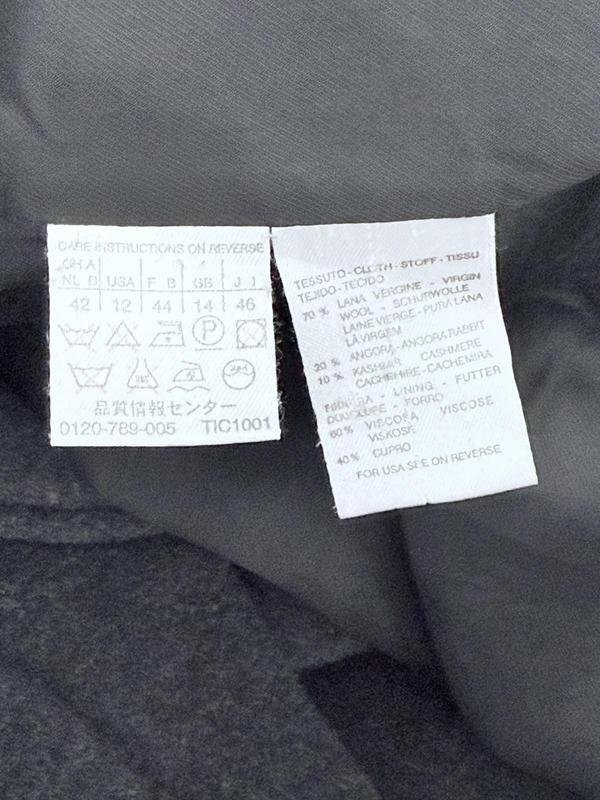 CARE INSTRUCTIONS ON REVERSE
CH A
NL D USA F B GB I J
42 12 44 14 46
P
品質情報センター
0120-789-005 TIC1001
TESSUTO - CLOTH - STOFF - TISSU
TEJIDO - TECIDO
70 % LANA VERGINE - VIRGIN
WOOL - SCHURWOLLE
LAINE VIERGE - PURA LANA
LÃ VIRGEM
20 % ANGORA - ANGORA RABBIT
10 % KASHMIR CASHMERE
CACHEMIRE - CACHEMIRA
FODERA - LINING - FUTTER
DOUBLURE - FORRO
60 % VISCOSA VISCOSE
VISKOSE
40 % CUPRO
FOR USA SEE ON REVERSE